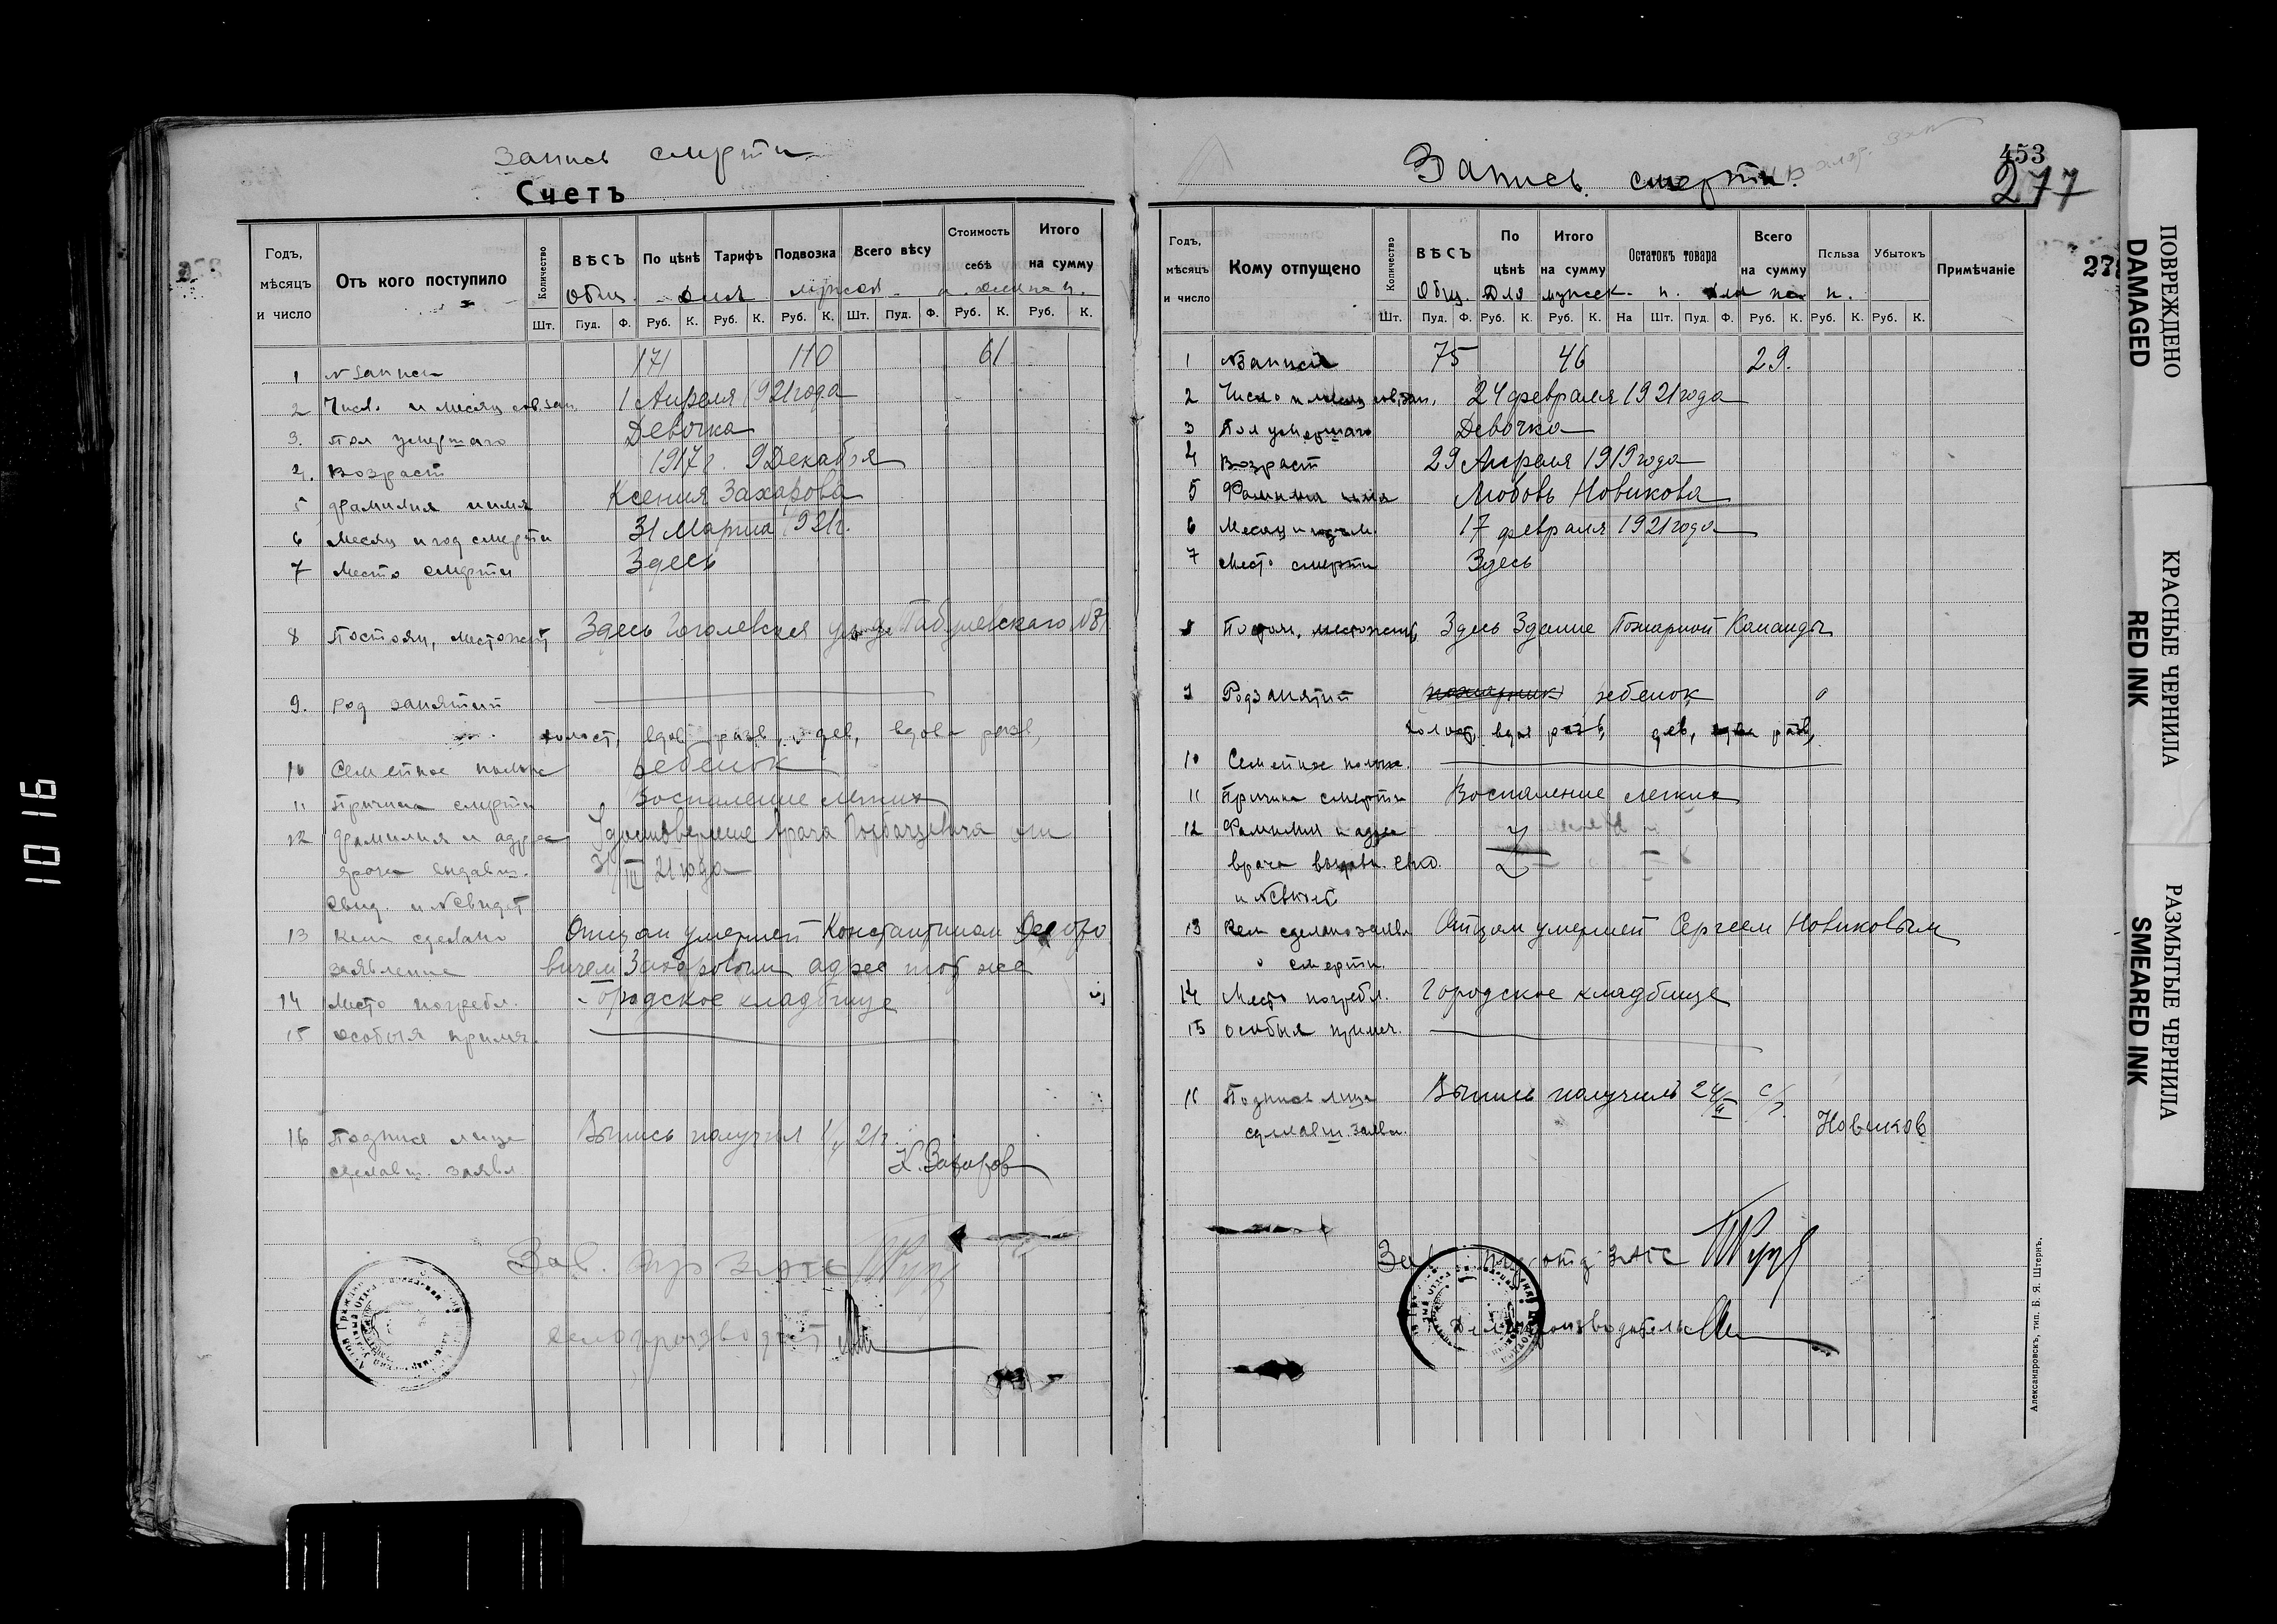 Запись смерти
Счетъ
Годъ, мѣсяцъ и число
Отъ кого поступило
Количество
ВѢСЪ
По цѣнѣ
Тарифъ
Подвозка
Всего вѣсу
Стоимость себѣ
Итого на сумму
Общ. для мужск. и для
Шт. Пуд. Ф. Руб. К. Руб. К. Руб. К. Шт. Пуд. Ф. Руб. К. Руб. К.
1 N записи 171 110 61
2 Число и месяц сов зап. 1 Апреля 1921 года
3. Пол умершаго Девочка
4. Возраст 1917 г. 9 Декабря
5 Фамилия и имя Ксения Захарова
6 Месяц и год смерти 31 Марта 1921 г.
7 Место смерти Здесь
8 Постоян, местожит Здесь Гоголевская улица N 81
9. Род занятий
холост, вдов разв, дев, вдова разв,
10 Семейное полож ребенок
11 Причина смерти Воспаление легких
12 Фамилия и адрес Удостоверение врача от
врача выдавш. 31/III 21 года
Свид. и N свидет
13 Кем сделано Отцом умершей Константином
заявление вичем Захаровым адрес тот же
14 Место погребл. Городское кладбище
15 Особыя примеч.
16 Подпись лица Выпись получил 21 г.
сделавш. заявл. К. Захаров
Зав. ЗАГС
Делопроизводит
453
Запись смерти.
277
Годъ, мѣсяцъ и число
Кому отпущено
Количество
ВѢСЪ
По цѣнѣ
Итого на сумму
Остатокъ товара
Всего на сумму
Польза
Убытокъ
Примѣчаніе
Общ. для мужск. п. для п.
Шт. Пуд. Ф. Руб. К. Руб. К. На Шт. Пуд. Ф. Руб. К. Руб. К. Руб. К.
1 N записи 75 46 29.
2 Число и месяц сов. зап. 24 февраля 1921 года
3 Пол умершаго Девочка
4 Возраст 29 Апреля 1919 года
5 Фамилия имя Любовь Новикова
6 Месяц и год см. 17 февраля 1921 года
7 Место смерти Здесь
8 Постоян, местожит, Здесь Здание Пожарной Команды
9 Род занятий пожарник ребенок
холост, вдов разв, дев, вдова разв,
10 Семейное полож.
11 Причина смерти Воспаление легких
12 Фамилия и адрес
врача выдавш. свид.
и N свидет
13 Кем сделано заявл Отцом умершей Сергеем Новиковым
о смерти.
14 Место погребл. Городское кладбище
15 Особыя примеч.
16 Подпись лица Выпись получил 24/II с/г.
сделавш. заявл. Новиков
Зав. подотд ЗАГС
Делопроизводитель
Александровскъ, тип. Б. Я. Штернъ.
27
ПОВРЕЖДЕНО
DAMAGED
КРАСНЫЕ ЧЕРНИЛА
RED INK
РАЗМЫТЫЕ ЧЕРНИЛА
SMEARED INK
10 16